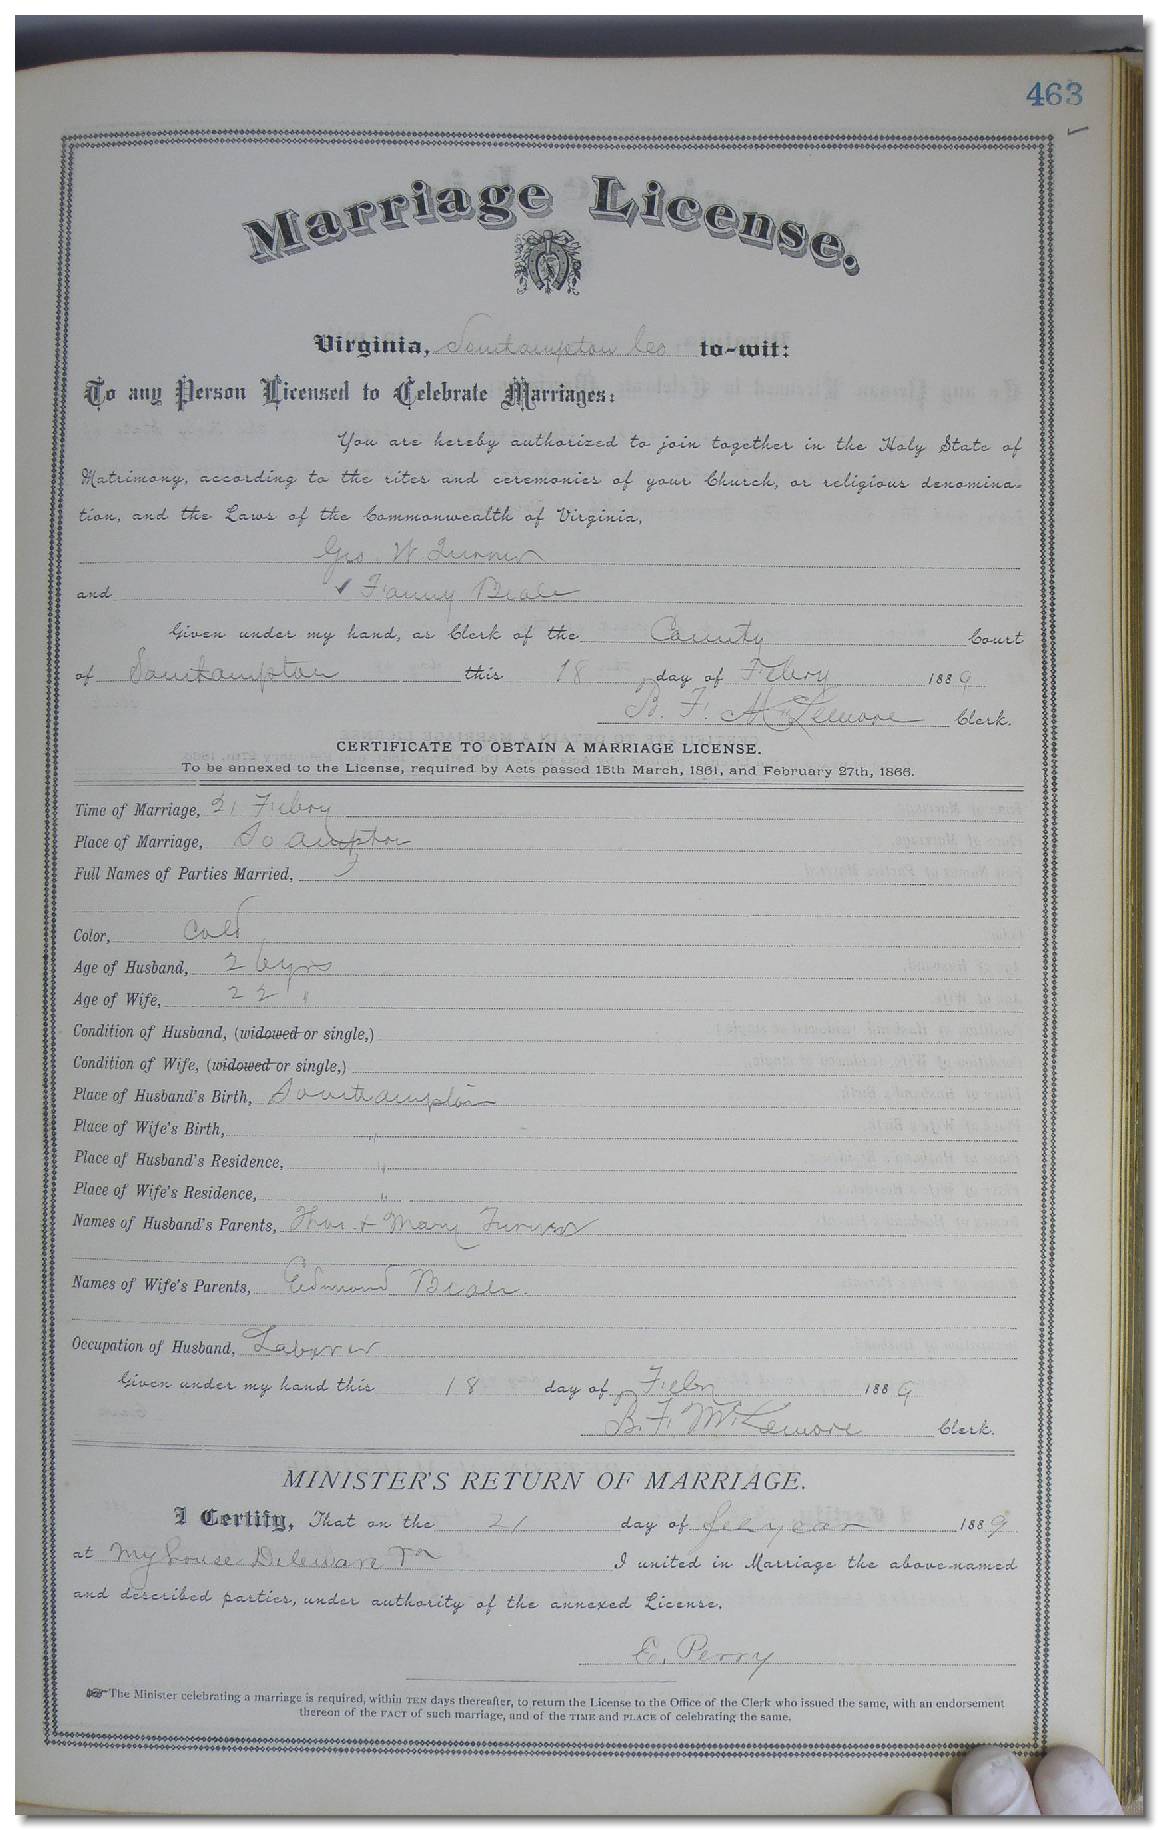 463
Marriage License.
Virginia, Southampton Co to-wit:
To any Person Licensed to Celebrate Marriages:
You are hereby authorized to join together in the Holy State of
Matrimony, according to the rites and ceremonies of your Church, or religious denomina-
tion, and the Laws of the Commonwealth of Virginia,
Geo W Turner
and ✓ Fanny Beale
Given under my hand, as Clerk of the County Court
of Southampton this 18 day of Febry 1889
B. F. McLemore Clerk.
CERTIFICATE TO OBTAIN A MARRIAGE LICENSE.
To be annexed to the License, required by Acts passed 15th March, 1861, and February 27th, 1866.
Time of Marriage, 21 Febry
Place of Marriage, So ampton
Full Names of Parties Married,
Color, Cold
Age of Husband, 26 yrs
Age of Wife, 22 "
Condition of Husband, (widowed or single,)
Condition of Wife, (widowed or single,)
Place of Husband's Birth, Southampton
Place of Wife's Birth, "
Place of Husband's Residence, "
Place of Wife's Residence, "
Names of Husband's Parents, Thos + Mary Turner
Names of Wife's Parents, Edmond Beale.
Occupation of Husband, Laborer
Given under my hand this 18 day of Feby 1889
B. F. McLemore Clerk.
MINISTER'S RETURN OF MARRIAGE.
I Certify, That on the 21 day of 1889
at My house Deleware I united in Marriage the above-named
and described parties, under authority of the annexed License.
E. Perry
The Minister celebrating a marriage is required, within TEN days thereafter, to return the License to the Office of the Clerk who issued the same, with an endorsement
thereon of the FACT of such marriage, and of the TIME and PLACE of celebrating the same.